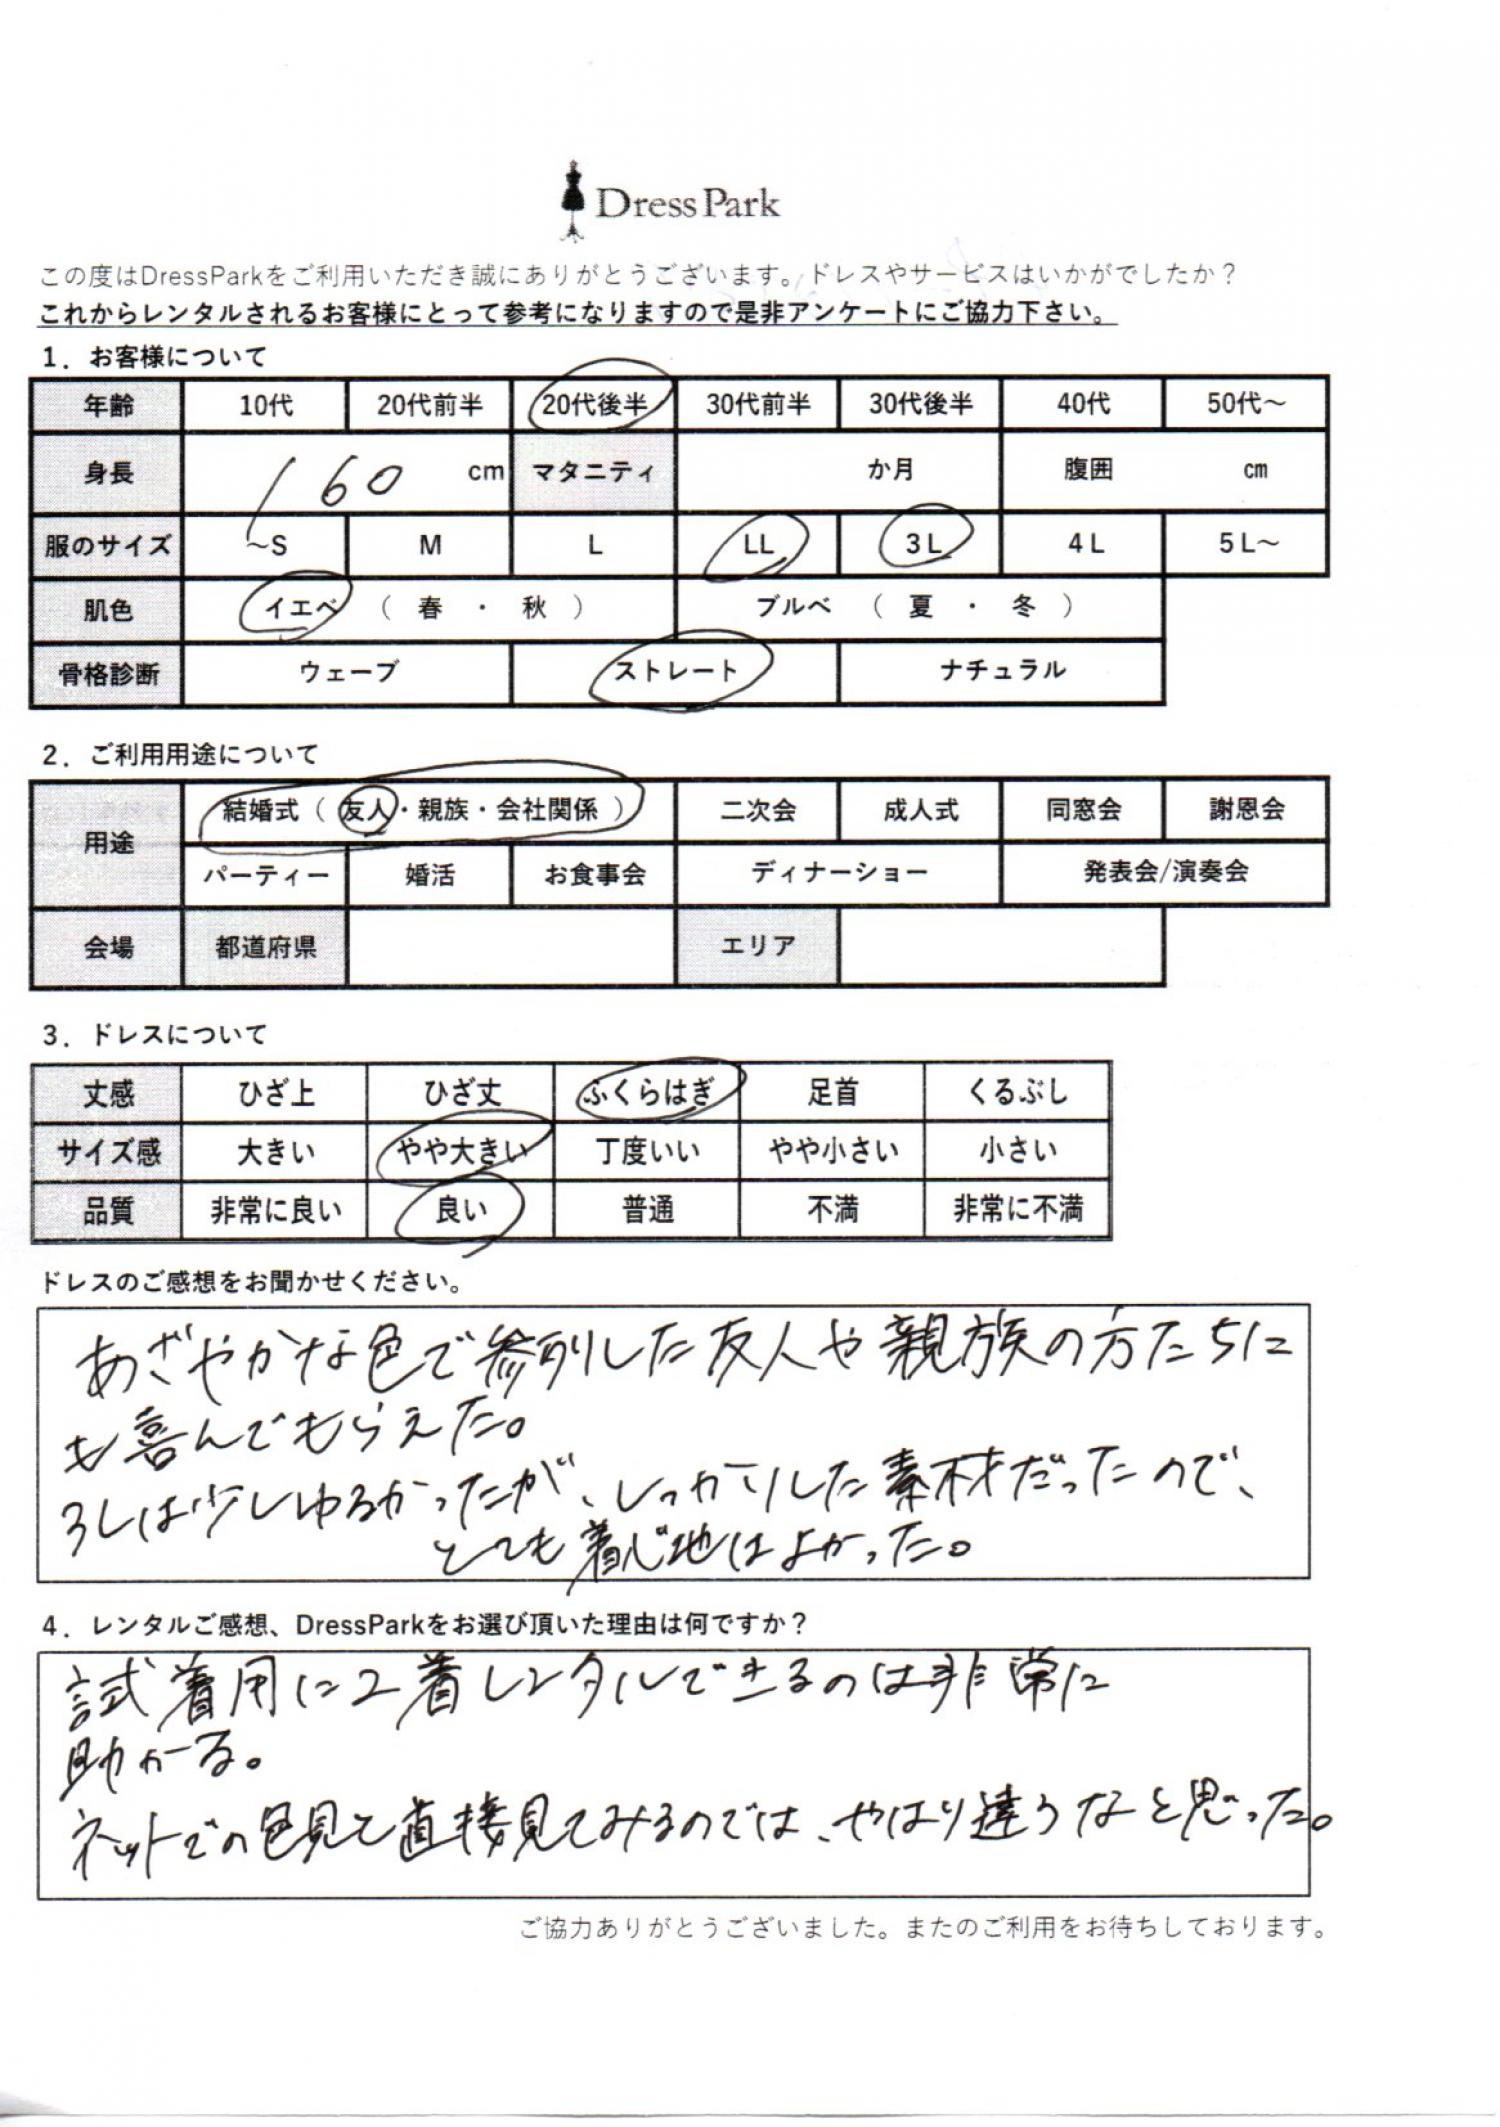 Dress Park
この度はDressParkをご利用いただき誠にありがとうございます。ドレスやサービスはいかがでしたか？
これからレンタルされるお客様にとって参考になりますので是非アンケートにご協力下さい。
1．お客様について
年齢 10代 20代前半 20代後半 30代前半 30代後半 40代 50代～
身長 160 cm マタニティ か月 腹囲 cm
服のサイズ ～S M L LL 3L 4L 5L～
肌色 イエベ （ 春 ・ 秋 ） ブルベ （ 夏 ・ 冬 ）
骨格診断 ウェーブ ストレート ナチュラル
2．ご利用用途について
用途 結婚式（ 友人・親族・会社関係 ） 二次会 成人式 同窓会 謝恩会
パーティー 婚活 お食事会 ディナーショー 発表会/演奏会
会場 都道府県 エリア
3．ドレスについて
丈感 ひざ上 ひざ丈 ふくらはぎ 足首 くるぶし
サイズ感 大きい やや大きい 丁度いい やや小さい 小さい
品質 非常に良い 良い 普通 不満 非常に不満
ドレスのご感想をお聞かせください。
あざやかな色で参列した友人や親族の方たちに
も喜んでもらえた。
3Lは少しゆるかったが、しっかりした素材だったので、
とても着心地はよかった。
4．レンタルご感想、DressParkをお選び頂いた理由は何ですか？
試着用に2着レンタルできるのは非常に
助かる。
ネットでの色見と直接見てみるのでは、やはり違うなと思った。
ご協力ありがとうございました。またのご利用をお待ちしております。